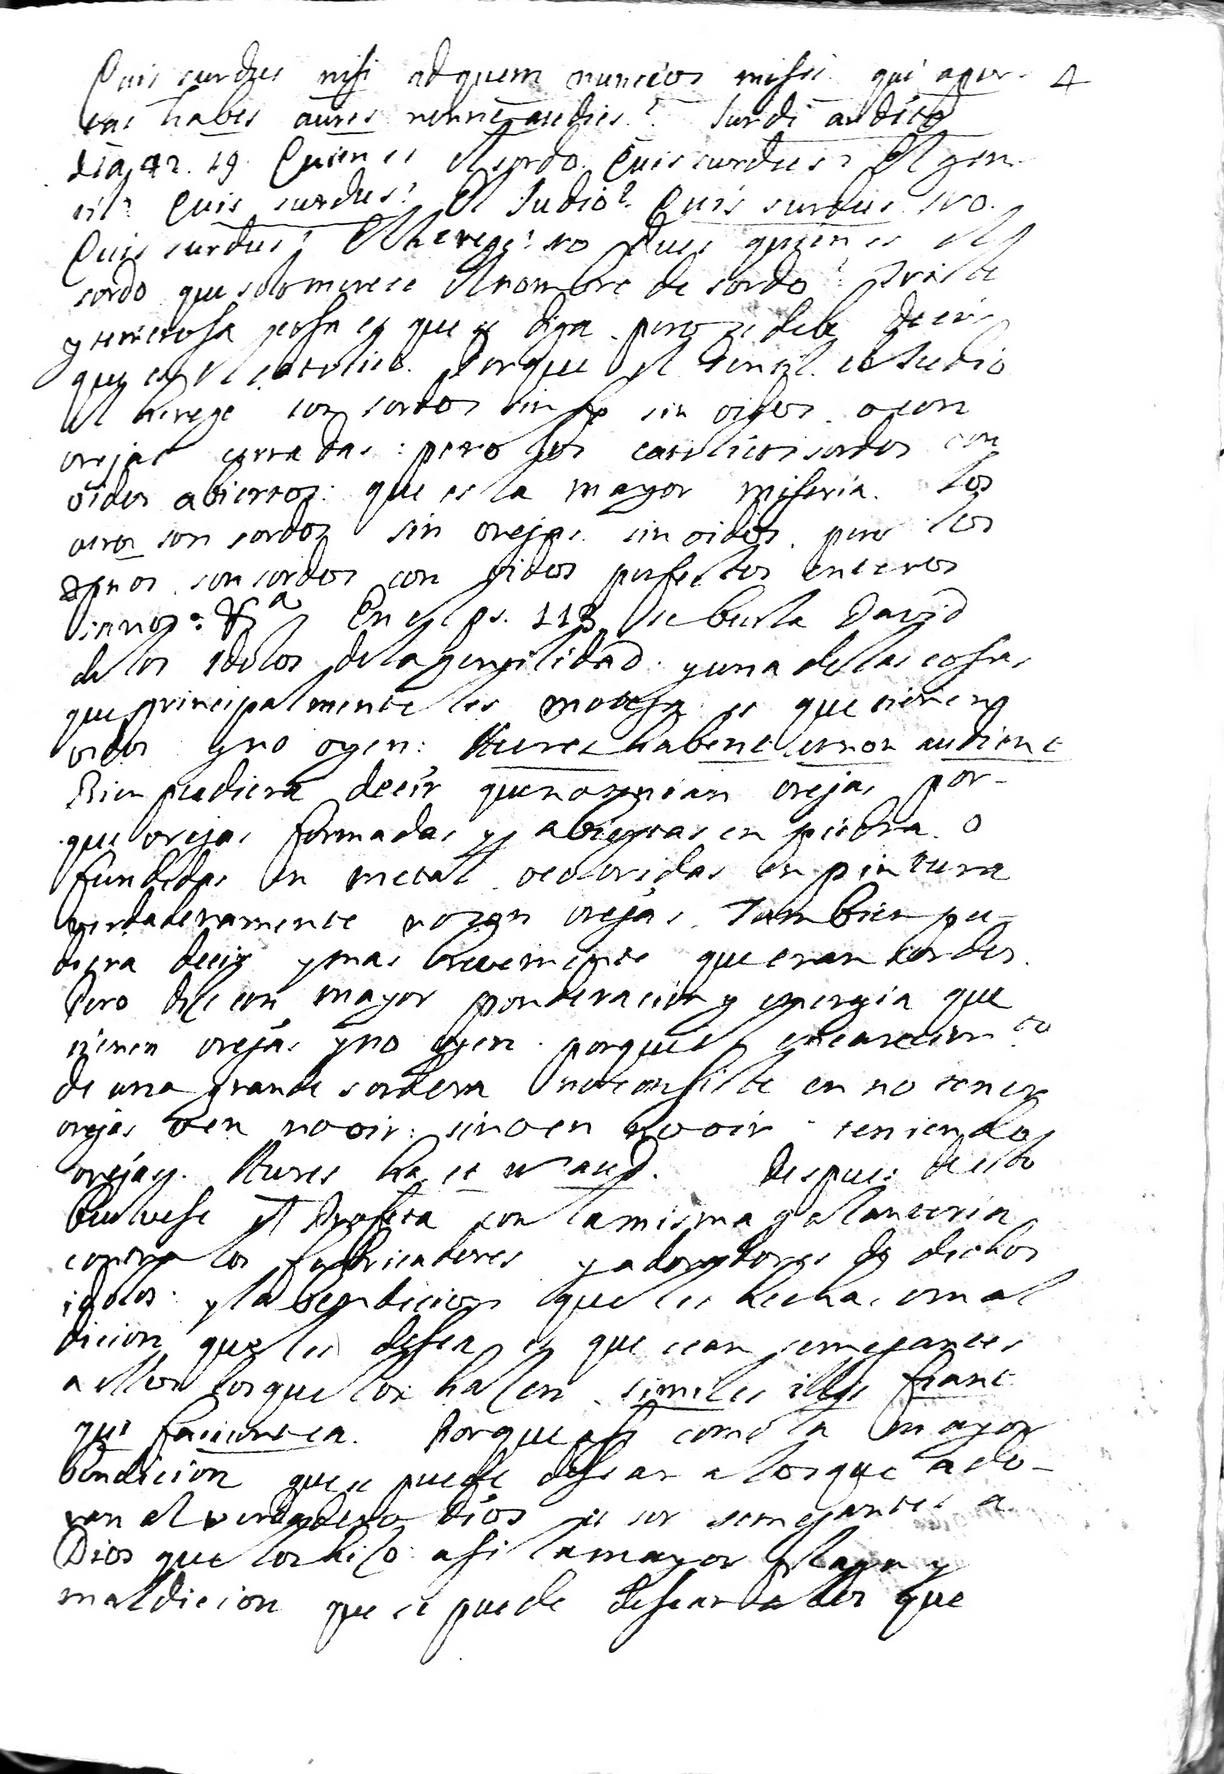 Quis surdus nisi ad quem nuncios missi. qui aper- 4
tas habes aures nonne audies? Surdi audite
Isa. 42. 19. Quien es el sordo. Quis surdus? El gen-
til? Quis surdus? El Judio? Quis surdus no.
Quis surdus? El herege? no Pues quien es el
sordo que solo merece el nombre de sordo? Triste
y temerosa cosa es que se diga. pero se debe decir
que es el catolico. Porque el Gentil. el Judio
el herege son sordos sin fe sin oidos. o con
orejas cerradas: pero los catolicos sordos con
oidos abiertos: que es la mayor miseria. Los
otros son sordos sin orejas. sin oidos. pero los
xpnos. son sordos con oidos perfectos enteros
sanos: &ª En el ps. 113. se burla David
de los Idolos de la gentilidad. y una de las cosas
que principalmente les moteja es que tienen
oidos y no oyen: Aures habent et non audient
Bien pudiera decir que no tenian orejas, por-
que orejas formadas y abiertas en piedra. o
fundidas en metal. o coloridas en pintura
verdaderamente no son orejas. Tambien pu-
diera decir y mas brevemente que eran sordos.
Pero dice con mayor ponderacion y energia que
tienen orejas y no oyen. porque el encarecimto
de una grande sordera no consiste en no tener
orejas o en no oir: sino en no oir teniendo
orejas. Aures ha. et n aud. Despues de esto
buelvese el Profeta con la misma galanteria
contra los fabricadores y adoradores de dichos
idolos: y la bendicion que les hecha, o mal
dicion que les desea es que sean semejantes
a ellos los que los hacen. similes illis fiant
qui faciunt ea. Porque asi como la mayor
bendicion que se puede desear a los que ado-
ran al verdadero Dios es ser semejantes a
Dios que los hiso: asi la mayor plaga y
maldicion que se puede desear a los que